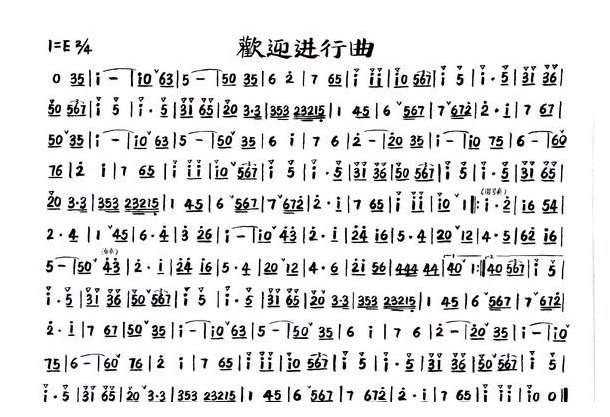 1=E 2/4
歡迎进行曲
0 35 | i - | i0 63 | 5 - | 50 35 | 6 2 | 7 65 | i ii | i0 567 | i 5 | i · 5 | 3i 36 |
50 567 | i 5 | i · 5 | 3i 65 | 20 3·3 | 353 23215 | 1 45 | 6 567 | 7 672 | 2 · i | 7 67 |
50 35 | i - | i0 63 | 5 - | 50 35 | 6 i | 7 6 | 2 - | 20 35 | i - | i0 75 | 6 - | 60
76 | 2 i | 7 65 | i ii | i0 567 | i 5 | i · 5 | 3i 36 | 50 567 | i 5 | i · 5 | 3i 65 |
20 3·3 | 353 23215 | 1 45 | 6 567 | 7 672 | 2 · i | 7 65 | i ii | i0 1 |: i · 2 | i6 54 |
2 · 4 | 1 45 | 6 · 4 | 3 26 | i - | i0 43 | 24 i6 | 5 · 4 | 20 12 | 4 · 5 | 62 i6 |
5 - | 50 43 | 2 · i | 24 i6 | 5 · 4 | 20 12 | 4 · 6 | 2i 56 | 444 44 | 40 1 :| 40 567 | i 5 |
i · 5 | 3i 36 | 50 567 | i 5 | i · 5 | 3i 65 | 20 3·3 | 353 23215 | 1 45 | 6 567 | 7 672 |
2 · i | 7 67 | 50 35 | i - | i0 63 | 5 - | 50 35 | 6 i | 7 6 | 2 - | 20 35 | i - | i0
75 | 6 - | 60 76 | 2 i | 7 65 | i ii | i0 567 | i 5 | i · 5 | 3i 36 | 50 567 | i 5 |
i · 5 | 3i 65 | 20 3·3 | 353 23215 | 1 45 | 6 567 | 7 672 | 2 · i | 7 65 | i ii | i0 0 ‖